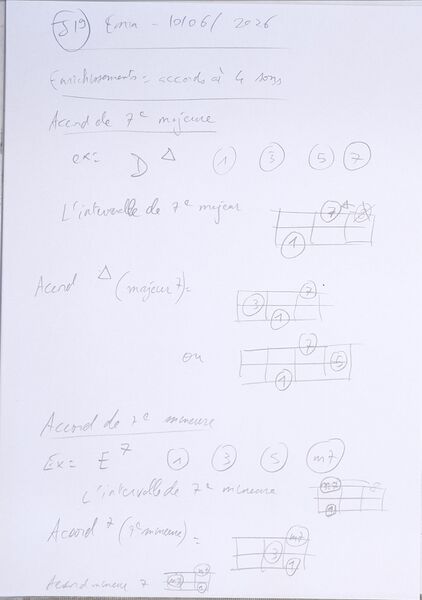 J19 Emma - 10/06/2026
Enrichissements = accords à 4 sons
Accord de 7e majeure
ex = D Δ 1 3 5 7
L'intervalle de 7e majeur 7 Δ 1
Accord Δ (majeur 7) = 3 1 7
ou 7 1 5
Accord de 7e mineure
Ex = E 7 1 3 5 m7
L'intervalle de 7e mineure m7 1
Accord 7 (7e mineure) = 3 m7 1
Accord mineur 7 m7